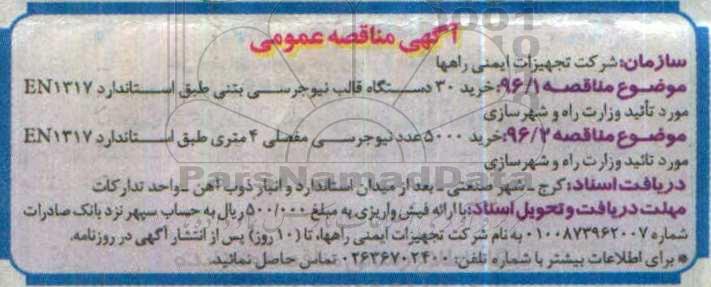 آگهی مناقصه عمومی
سازمان: شرکت تجهیزات ایمنی راهها
موضوع مناقصه ۹۶/۱: خرید ۳۰ دستگاه قالب نیوجرسی بتنی طبق استاندارد EN۱۳۱۷
مورد تأئید وزارت راه و شهرسازی
موضوع مناقصه ۹۶/۲: خرید ۵۰۰۰ عدد نیوجرسی مفصلی ۴ متری طبق استاندارد EN۱۳۱۷
مورد تائید وزارت راه و شهرسازی
دریافت اسناد: کرج - شهر صنعتی - بعد از میدان استاندارد و انبار ذوب آهن - واحد تدارکات
مهلت دریافت و تحویل اسناد: با ارائه فیش واریزی به مبلغ ۵۰۰/۰۰۰ ریال به حساب سپهر نزد بانک صادرات
شماره ۰۱۰۰۸۷۳۹۶۲۰۰۷ به نام شرکت تجهیزات ایمنی راهها، تا (۱۰ روز) پس از انتشار آگهی در روزنامه.
* برای اطلاعات بیشتر با شماره تلفن: ۰۲۶۳۶۷۰۲۴۰۰ تماس حاصل نمائید.
ParsNamadData